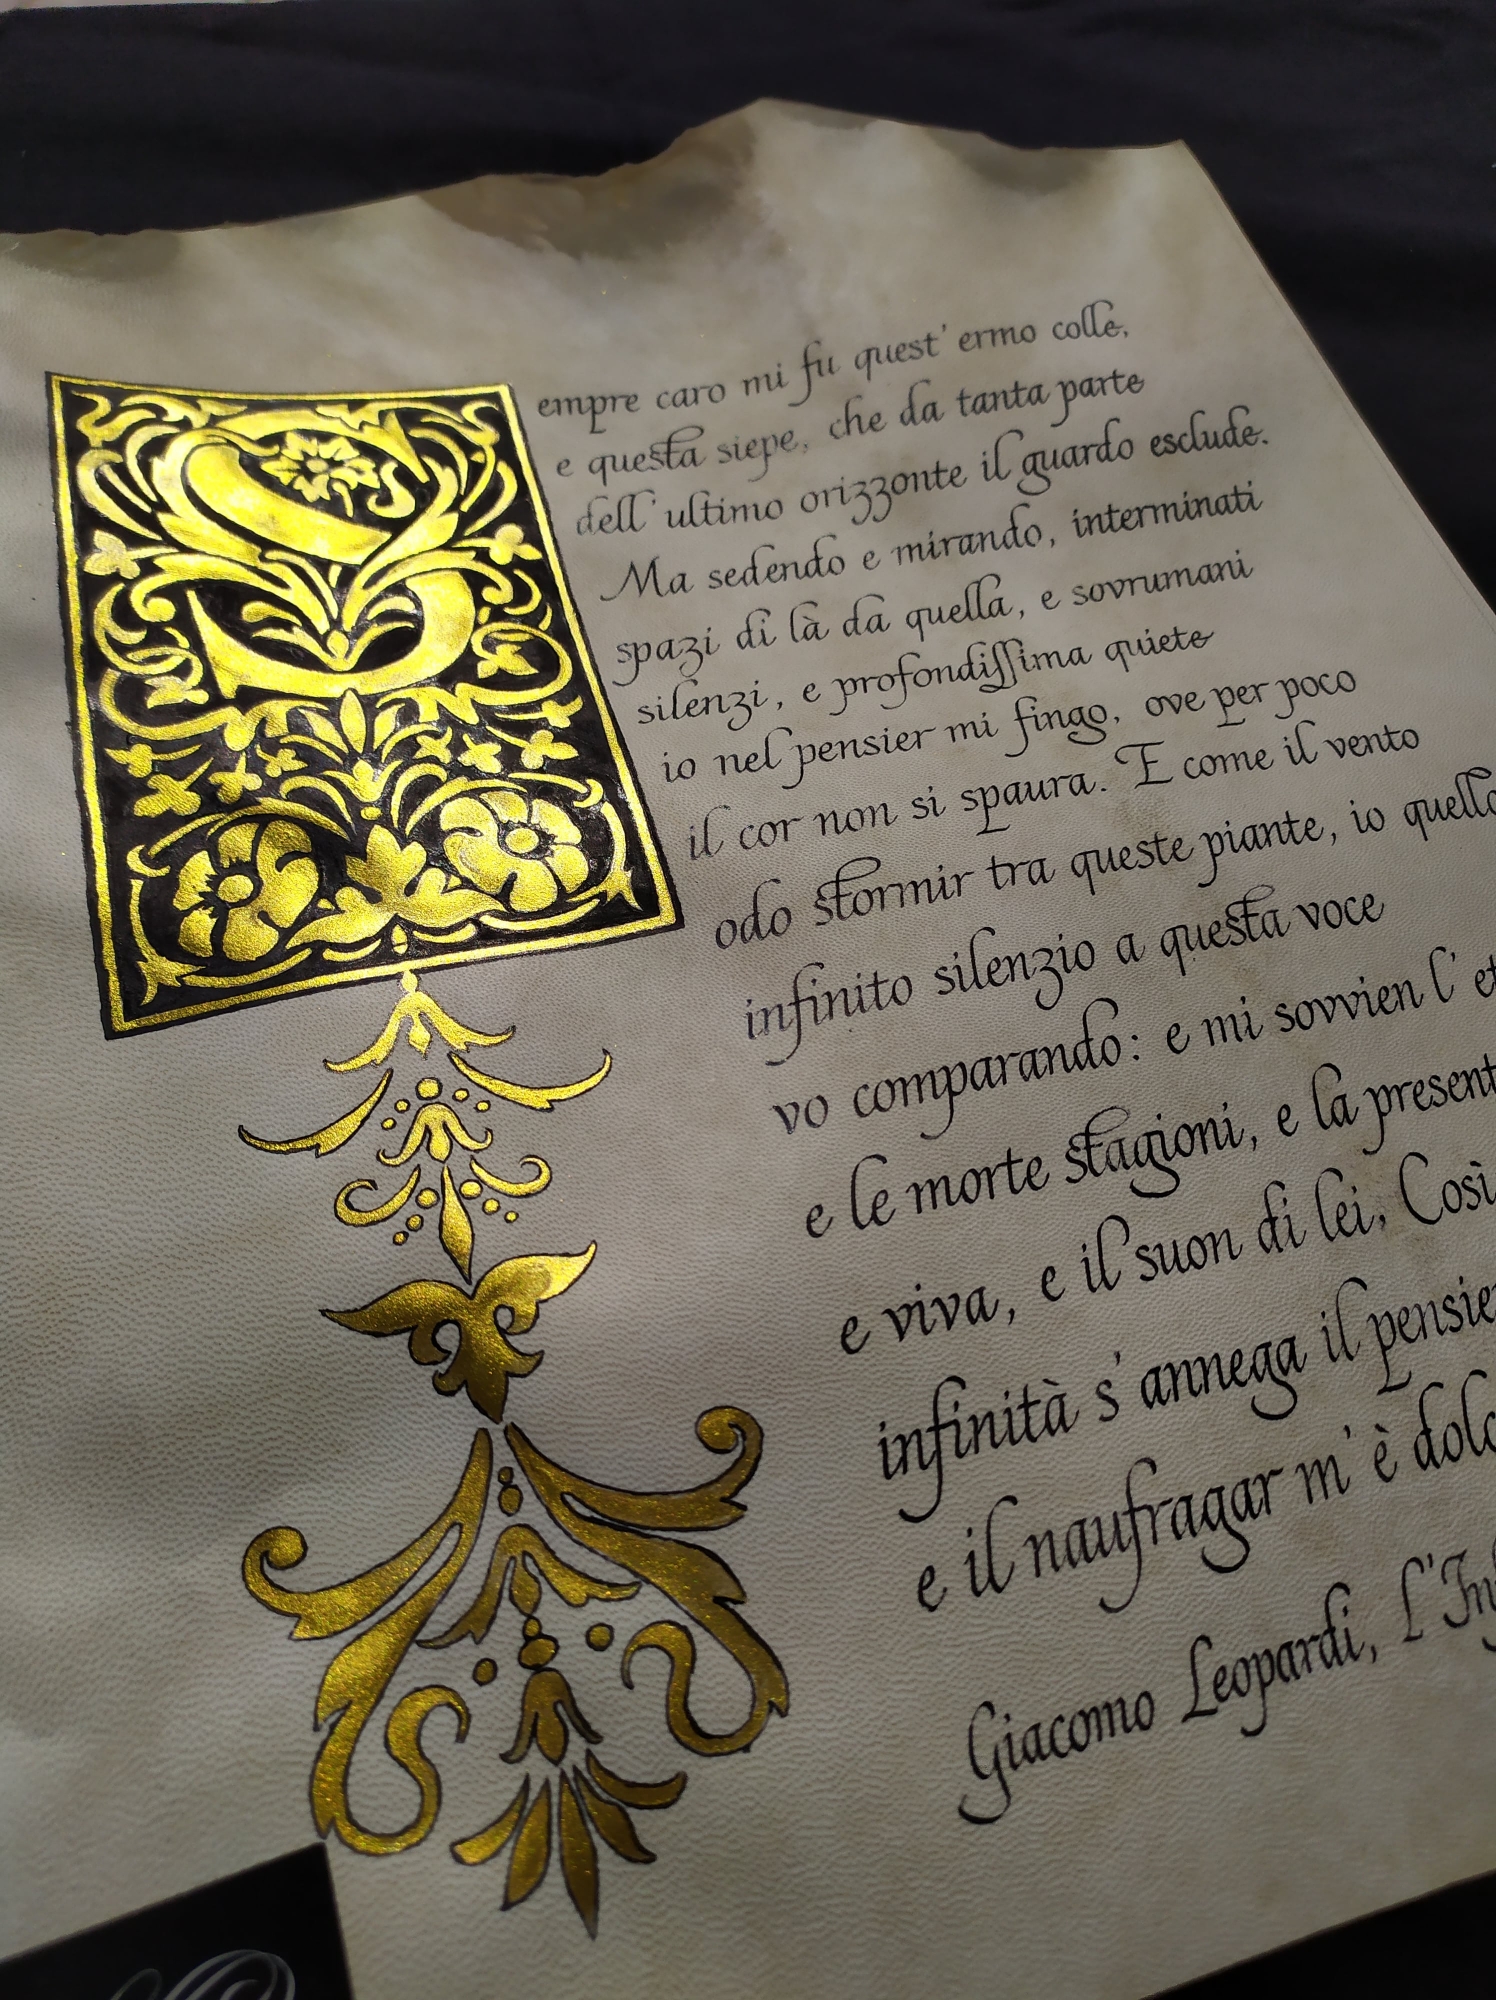 Sempre caro mi fu quest' ermo colle,
e questa siepe, che da tanta parte
dell' ultimo orizzonte il guardo esclude.
Ma sedendo e mirando, interminati
spazi di là da quella, e sovrumani
silenzi, e profondissima quiete
io nel pensier mi fingo, ove per poco
il cor non si spaura. E come il vento
odo stormir tra queste piante, io quello
infinito silenzio a questa voce
vo comparando: e mi sovvien l' et
e le morte stagioni, e la present
e viva, e il suon di lei. Così
infinità s' annega il pensie
e il naufragar m' è dolc
Giacomo Leopardi, L'Inf